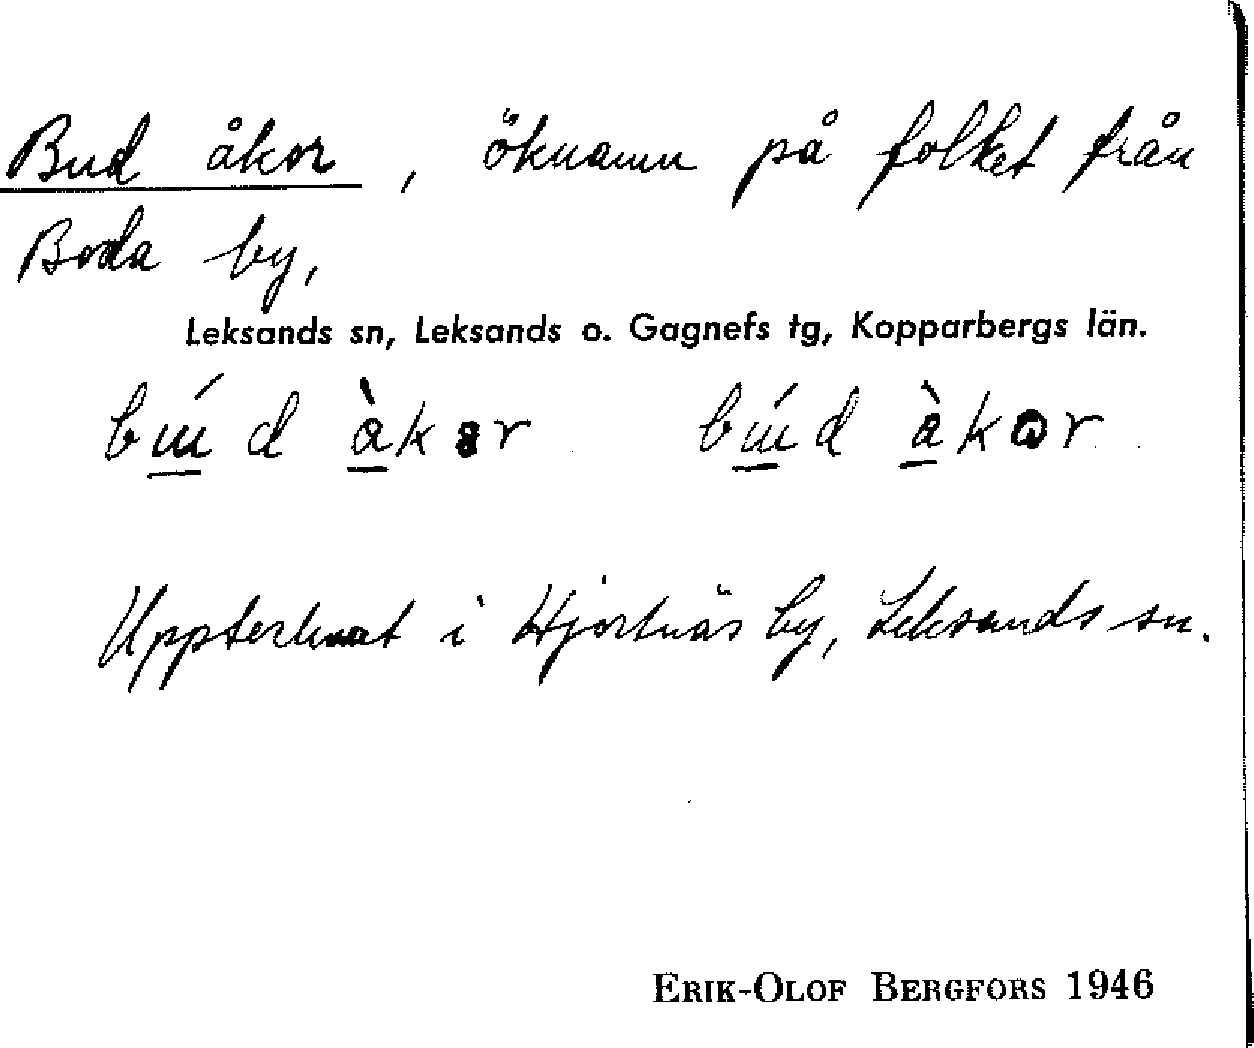 Bud åkor, öknamn på folket från
Boda by,
Leksands sn, Leksands o. Gagnefs tg, Kopparbergs län.
Upptecknat i Hjortnäs by, Leksands sn.
ERIK-OLOF BERGFORS 1946